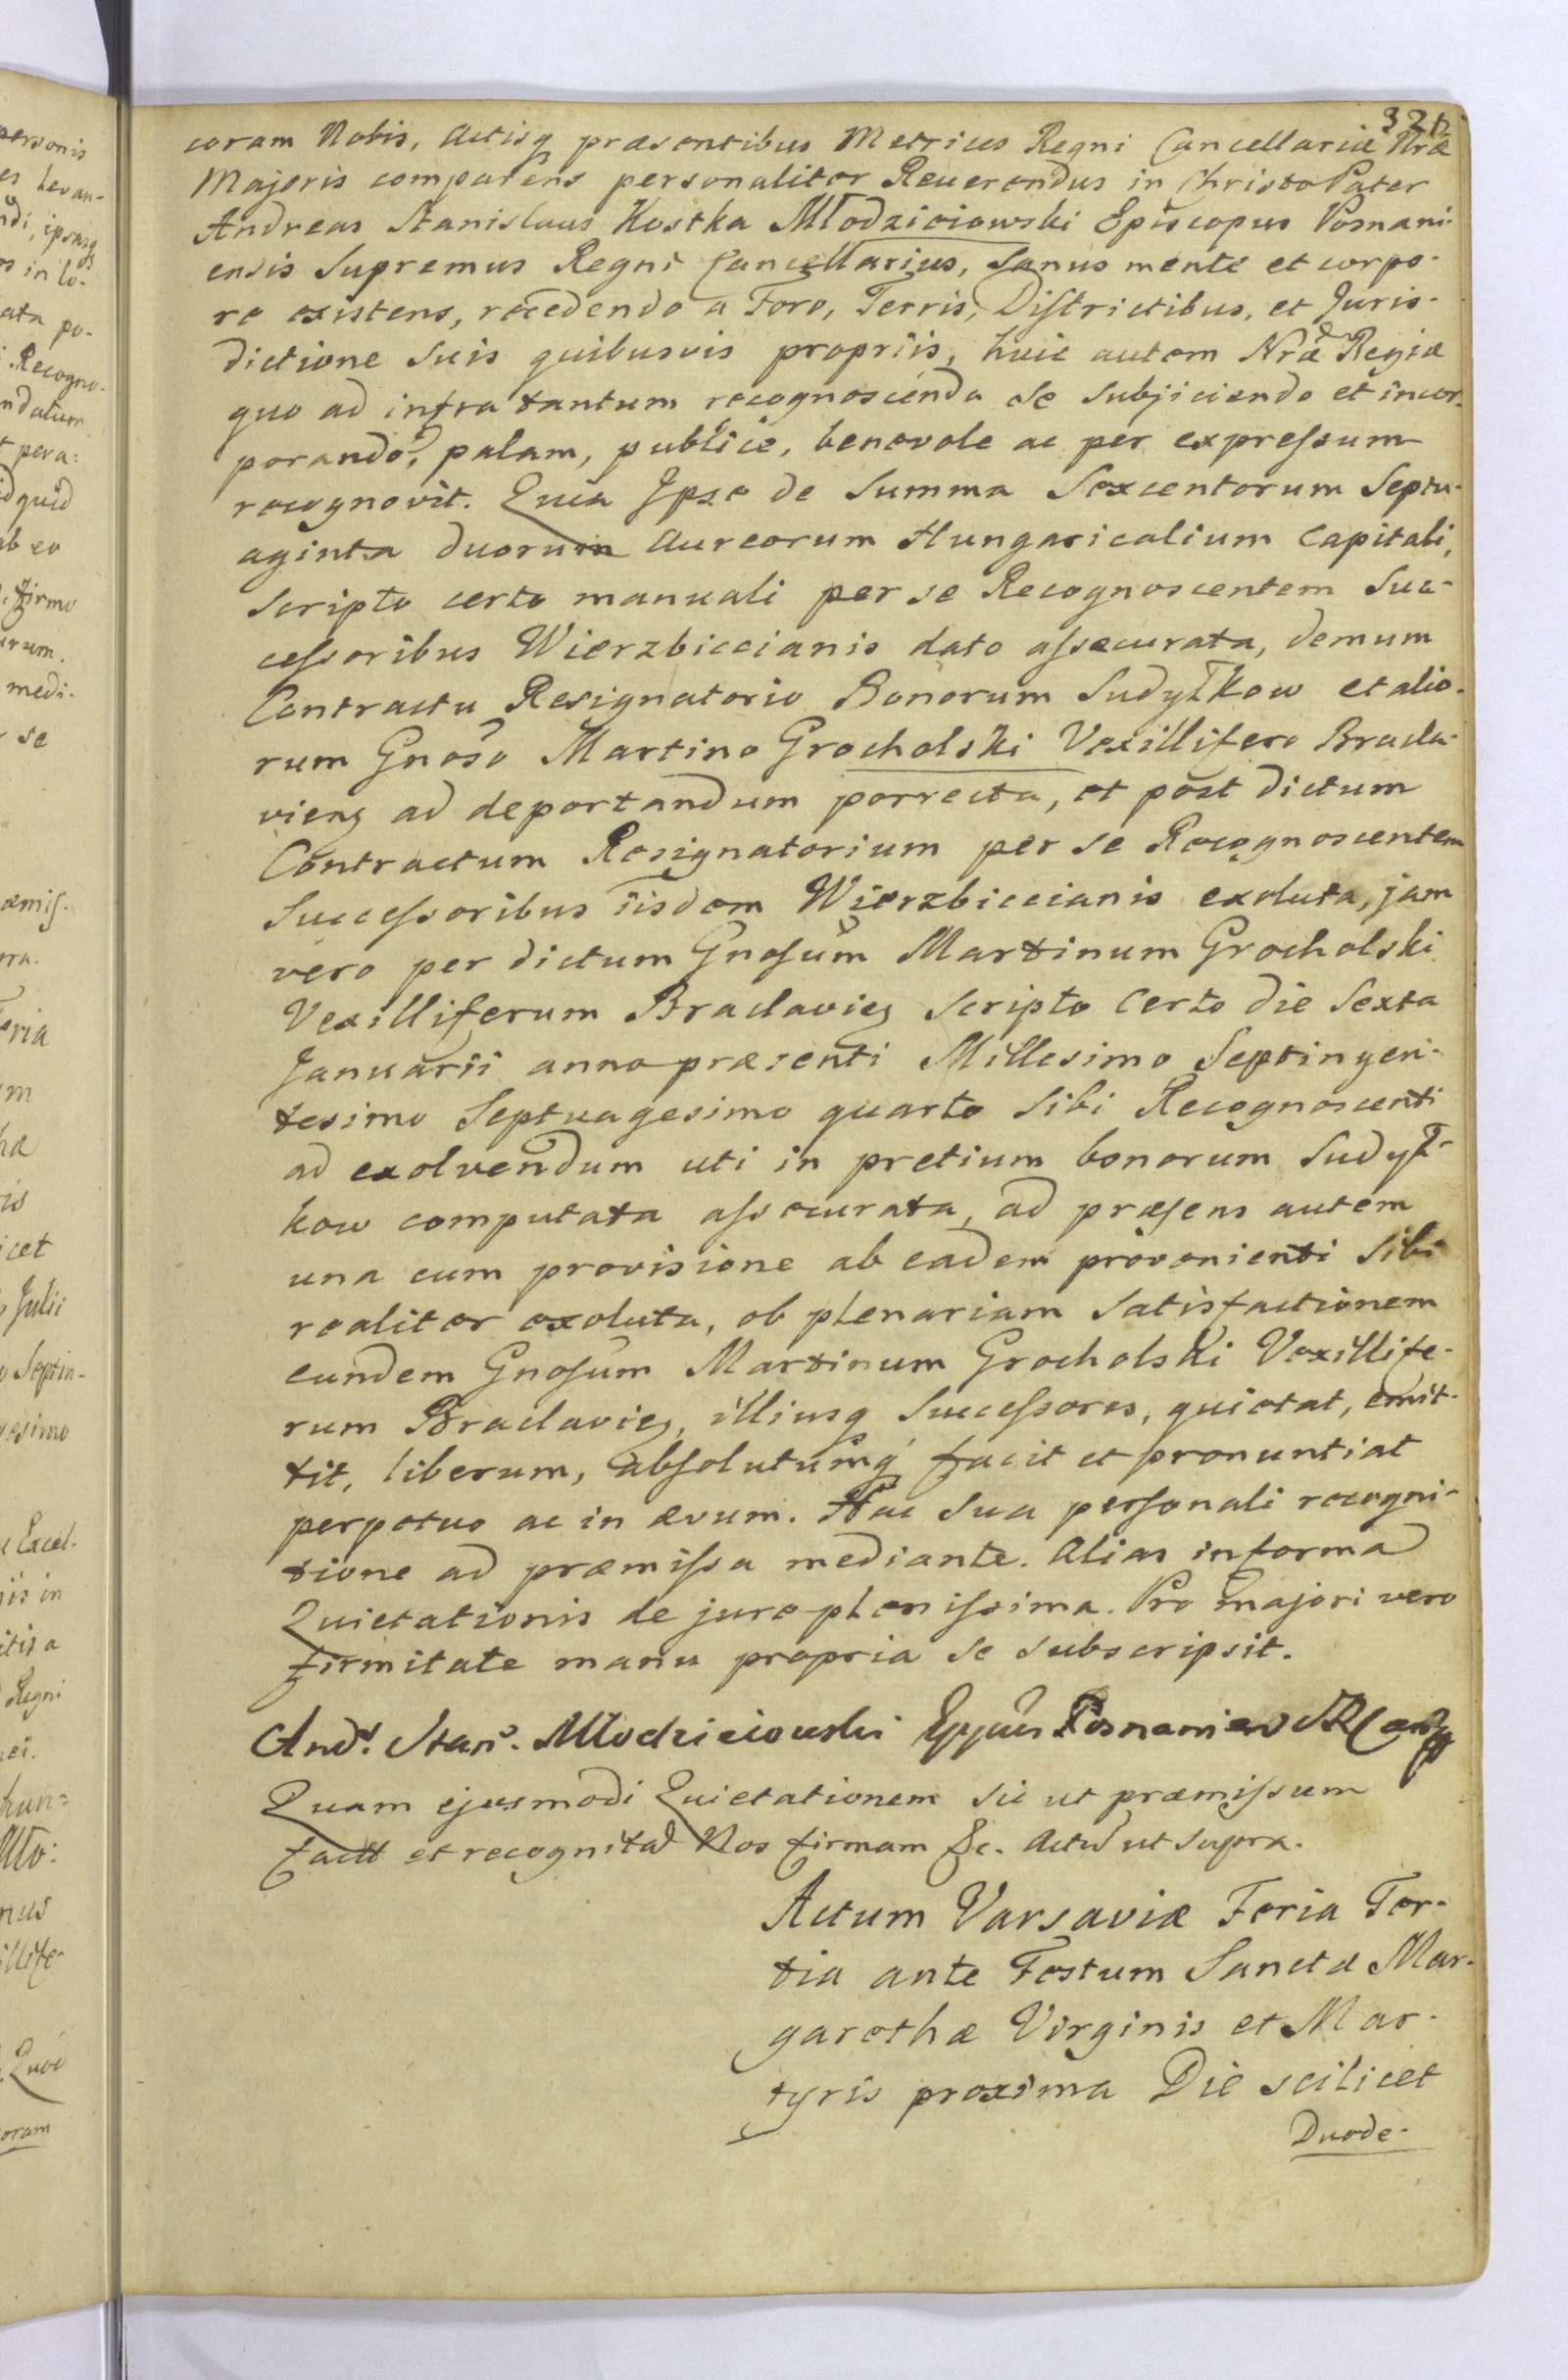 coram Nobis, Actisq præsentibus Metrices Regni Cancellariæ Nræ
Majoris comparens personaliter Reuerendus in Christo Pater
Andreas Stanislaus Kostka Młodzieiowski Episcopus Posnani-
ensis Supremus Regni Cancellarius, Sanus mente et corpo-
re existens, recedendo a Foro, Terris, Districtibus, et Juris-
dictione Suis quibusvis propriis, huic autem Nræ Regiæ
quo ad infra tantum recognoscenda se subjiciendo et incor-
porando, palam, publice, benevole ac per expressum
recognovit. Quia Ipse de Summa Sexcentorum Septu-
aginta duorum Aureorum Hungaricalium Capitali,
Scripto certo manuali per se Recognoscentem Suc-
cessoribus Wierzbiccianis dato assecurata, demum
Contractu Resignatorio Bonorum Sudyłkow et alio-
rum Gnoso Martino Grocholski Vexillifero Bracla-
viens ad deportandum porrecta, et post dictum
Contractum Resignatorium per se Recognoscentem
Successoribus iisdem Wierzbiccianis exoluta, jam
vero per dictum Gnosum Martinum Grocholski
Vexilliferum Braclavies Scripto Certo die Sexta
Januarii anno præsenti Millesimo Septingen-
tesimo Septuagesimo quarto Sibi Recognoscenti
ad exolvendum uti in pretium bonorum Sudył-
kow computata assecurata, ad præsens autem
una cum provisione ab eadem provenienti Sibi
realiter exoluta, ob plenariam Satisfactionem
eundem Gnosum Martinum Grocholski Vexillife-
rum Braclavies, illiusq Successores, quietat, emit-
tit, liberum, absolutumq facit et pronuntiat
perpetuo ac in ævum. Hac Sua personali recogni-
tione ad præmissa mediante. Alias in forma
Quietationis de jure plenissima. Pro majori vero
firmitate manu propria se subscripsit.
And. Stan. Młodzieiowski Eppus Posnanien
Quam ejusmodi Quietationem Sic ut præmissum
fact et recognita Nos firmam &c. Act ut Supra.
Actum Varsaviæ Feria Ter-
tia ante Festum Sanctæ Mar-
garethæ Virginis et Mar-
tyris proxima Die scilicet
Duode-